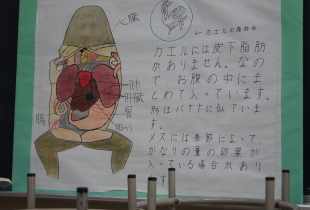 心臓
← カエルの脂肪
カエルには皮下脂肪
がありません。なの
で お腹の中にま
とめて入っています。
形はバナナに似ていま
す。
メスには季節によって、
かなりの量の卵巣が
入っている場合があり
ます
肺
肝臓
胃
腸